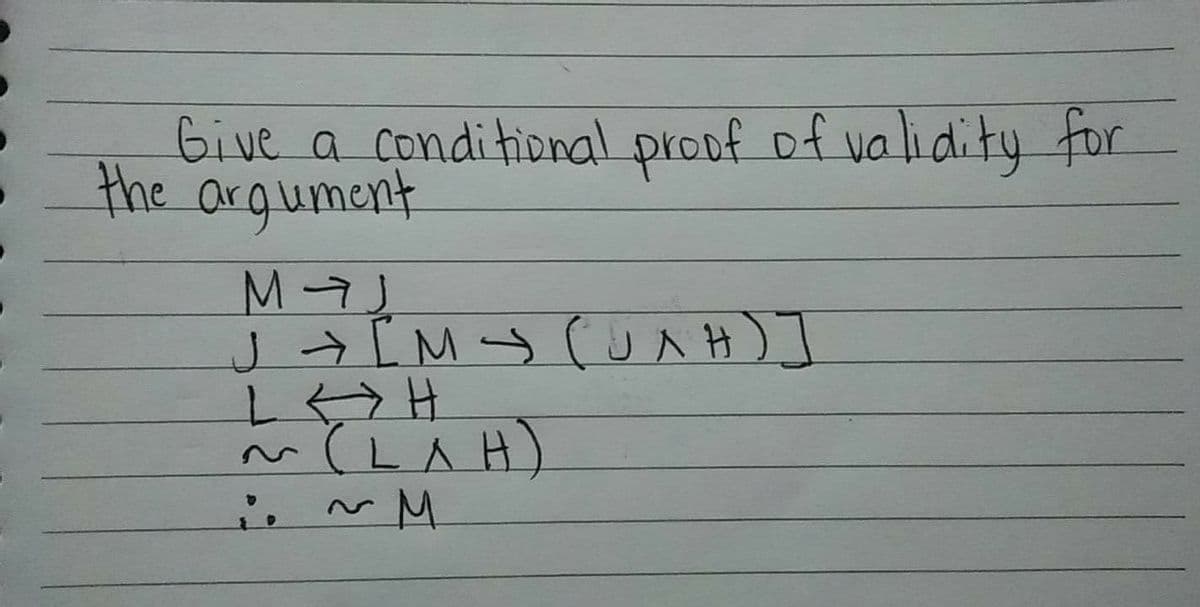 Give a conditional proof of validity for
the argument
M → J
J → [M → (J ∧ H)]
L ↔ H
~ (L ∧ H)
∴ ~ M